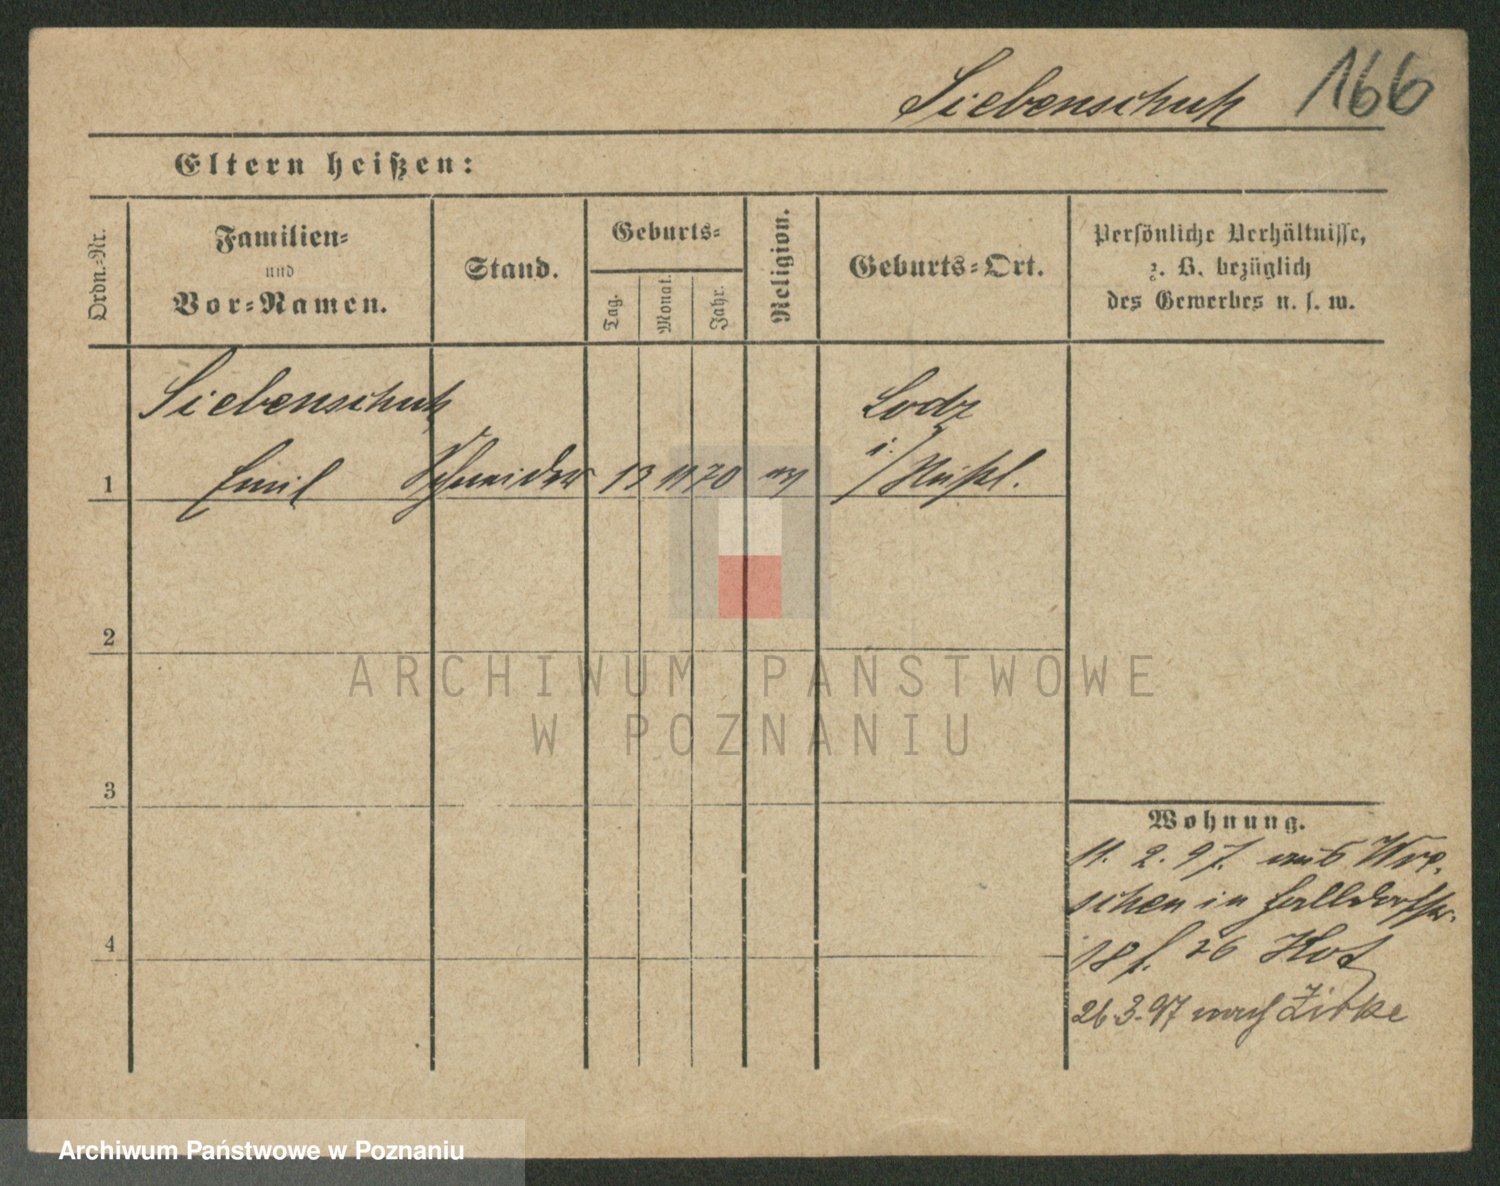 Siebenschuh 166
Eltern heißen:
Ordn.-Nr.
Familien-
und
Vor-Namen.
Stand.
Geburts-
Tag.
Monat.
Jahr.
Religion.
Geburts-Ort.
Persönliche Verhältnisse,
z. B. bezüglich
des Gewerbes u. s. w.
Siebenschuh
Lodz
1 Emil Schneider 13 11 70 i./Rußl.
2
ARCHIWUM PAŃSTWOWE
W POZNANIU
3
Wohnung.
11. 2. 97. aus Wre-
schen in
4
18 f. 26 Hof
26.3.97 nach Zirke
Archiwum Państwowe w Poznaniu